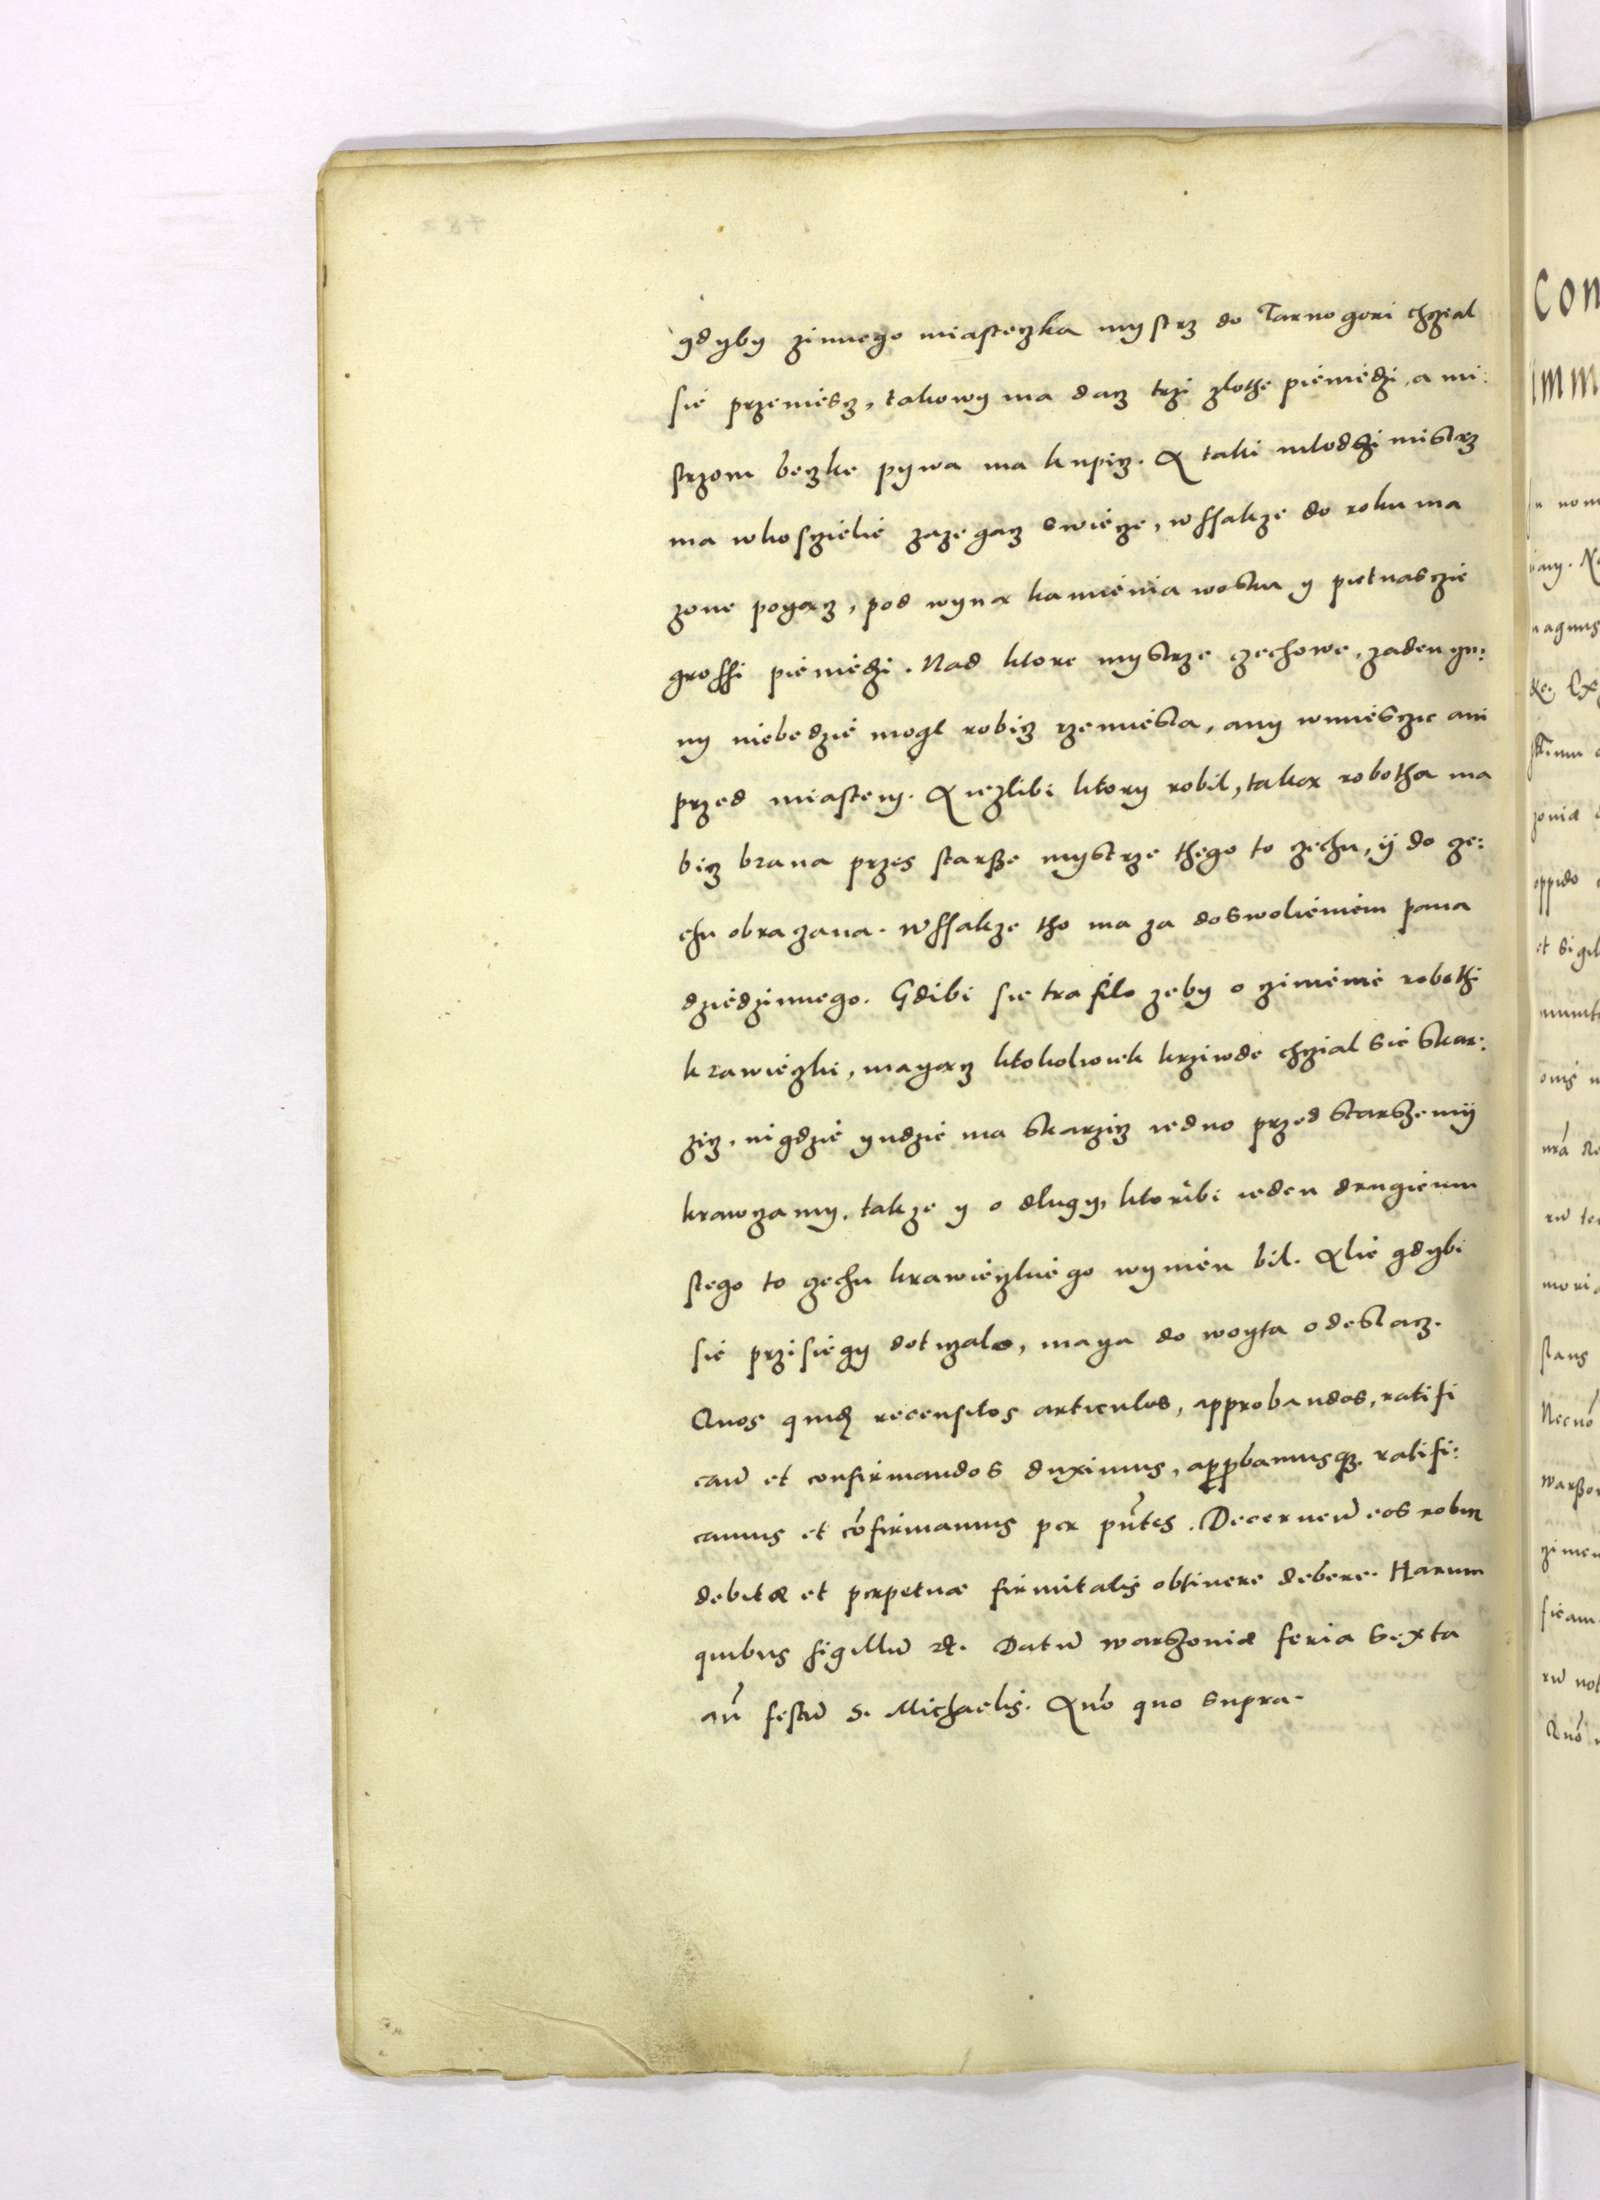 gdyby zinnego miasteczka mystrz do Tarnogori chczial
sie przeniescz, takowy ma dacz trzi zlothe pieniedzi, a mi:
strzom beczke pywa ma kupicz. A taki mlodszi mistrz
ma wkosczielie zazegacz swiecze, wssakze do roku ma
zone poyącz, pod wyną kamienia wosku y pietnasczie
grossi pieniedzi. Nad ktore mystrze czechowe, zaden yn:
ny niebedzie mogl robicz rzemiesla, any wmiesczie ani
przed miastem. A iezlibi ktory robil, taką robotha ma
bicz brana przes starsze mystrze thego to czechu, ÿ do cze:
chu obraczana. Wssakze tho ma za doswolieniem pana
dziedzinnego. Gdibi sie trafilo zeby o zinienie robothi
krawieczki, mayącz ktokolwiek krziwde chczial sie skar:
zicz, nigdzie yndzie ma skarzicz iedno przed starszemÿ
krawczamy, takze y o dlugy, ktoribi ieden drugiemu
stego to czechu krawieczkiego wynien bil. Alie gdybi
sie przisiegy doticzalo, maya do woyta odeslacz.
Quos quidē recensitos articulos, approbandos, ratifi
cañ et confirmandos duximus, approbamusq̨ ratifi:
camus et cōfirmamus per pñtes. Decerneñ eos robur
debitæ et perpetuæ firmitatis obtinere debere. Harum
quibus sigillū etc. Datū warszoniæ feria sexta
añ festū S. Michaelis. Anō quo supra.